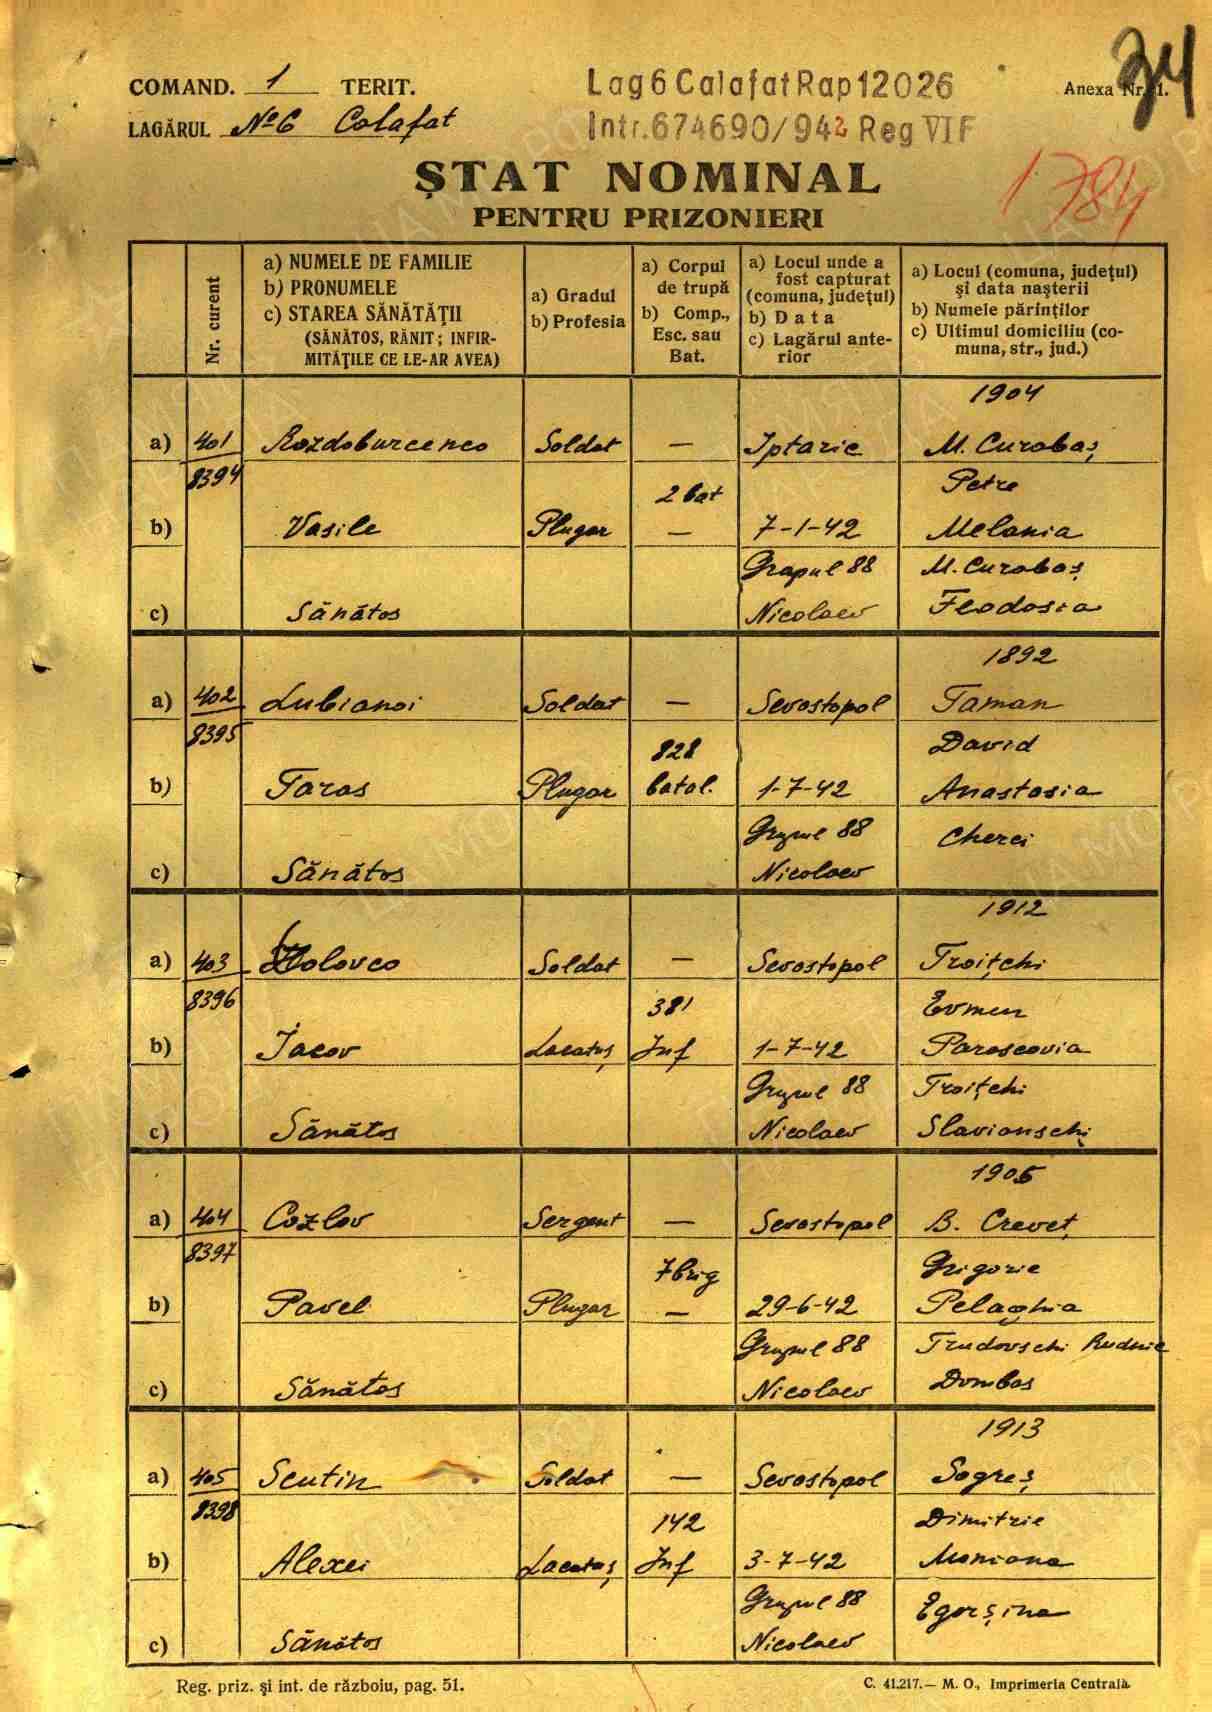 COMAND. 1 TERIT.
LAGĂRUL No 6 Calafat
Lag 6 Calafat Rap 12026
Intr. 674690/942 Reg VI F
Anexa Nr. 1.
34
1784
ŞTAT NOMINAL
PENTRU PRIZONIERI
Nr. curent
a) NUMELE DE FAMILIE
b) PRONUMELE
c) STAREA SĂNĂTĂŢII
(SĂNĂTOS, RĂNIT; INFIR-
MITĂŢILE CE LE-AR AVEA)
a) Gradul
b) Profesia
a) Corpul
de trupă
b) Comp.,
Esc. sau
Bat.
a) Locul unde a
fost capturat
(comuna, judeţul)
b) Data
c) Lagărul ante-
rior
a) Locul (comuna, judeţul)
şi data naşterii
b) Numele părinţilor
c) Ultimul domiciliu (co-
muna, str., jud.)
1904
a) 401 Rozdoburcenco Soldat — Iptarie M. Curobaş
8394 2 bat Petre
b) Vasile Plugar — 7-1-42 Melania
Grapul 88 M. Curobaş
c) Sănătos Nicolaev Feodosia
1892
a) 402 Lubianoi Soldat — Sevostopol Taman
8395 828 David
b) Taras Plugar batal. 1-7-42 Anastasia
Grupul 88 Cherci
c) Sănătos Nicolaev
1912
a) 403 Holovco Soldat — Sevostopol Troiţchi
8396 381 Evmen
b) Iacov Lacatuş Inf 1-7-42 Parascovia
Grupul 88 Troiţchi
c) Sănătos Nicolaev Slavianschi
1905
a) 404 Cozlov Sergent — Sevostopol B. Creveţ
8397 7 brig Grigorie
b) Pavel Plugar — 29-6-42 Pelaghia
Grupul 88 Trudovschi Rudnic
c) Sănătos Nicolaev Dombas
1913
a) 405 Scutin Soldat — Sevostopol Sogreş
8398 142 Dimitrie
b) Alexei Lacatuş Inf 3-7-42 Moniana
Grupul 88 Egorşina
c) Sănătos Nicolaev
Reg. priz. şi int. de războiu, pag. 51.
C. 41.217.— M. O., Imprimeria Centrală.